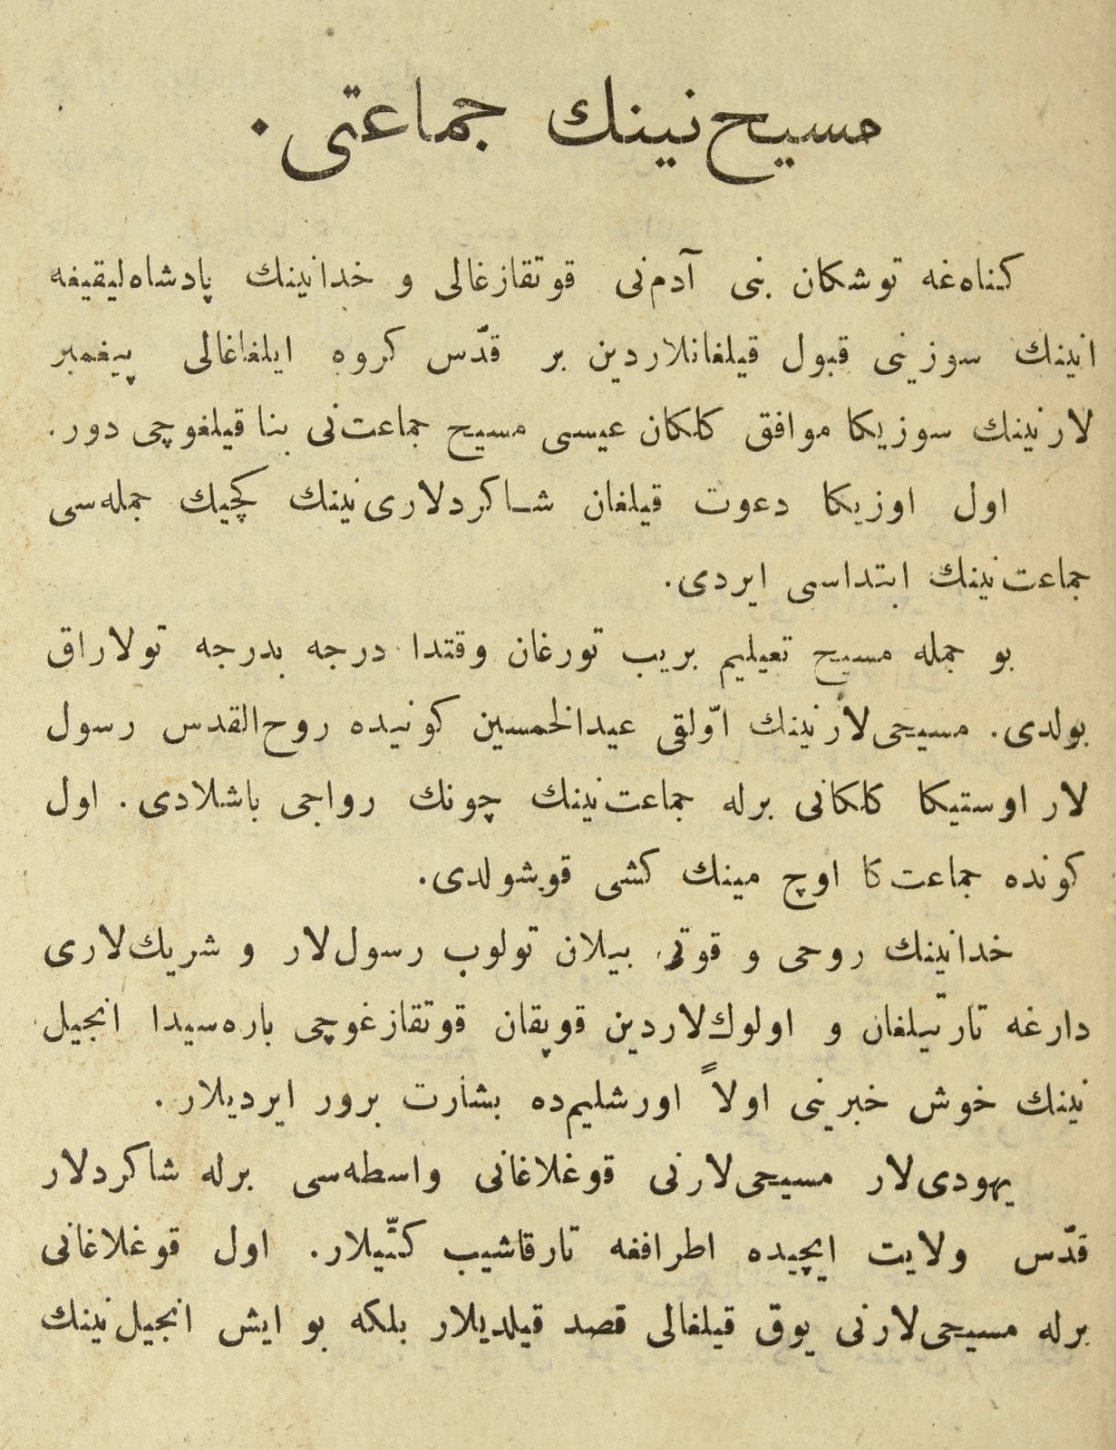 مسیح‌نینك جماعتی .
كناه‌غه توشكان بنی آدم‌نی قوتقازغالی و خدانینك پادشاه‌لیقیغه
انینك سوزینی قبول قیلغانلاردین بر قدّس كروه ایلغاغالی پیغمبر
لارنینك سوزیكا موافق كلكان عیسی مسیح جماعت‌نی بنا قیلغوچی دور.
اول اوزیكا دعوت قیلغان شاكردلاری‌نینك كچیك جمله‌سی
جماعت‌نینك ابتداسی ایردی.
بو جمله مسیح تعیلیم بریب تورغان وقتدا درجه بدرجه تولاراق
بولدی. مسیحی‌لارنینك اوّلقی عیدالخمسین كونیده روح‌القدس رسول
لار اوستیكا كلكانی برله جماعت‌نینك چونك رواجی باشلادی. اول
كونده جماعت‌كا اوچ مینك كشی قوشولدی.
خدانینك روحی و قوتی بیلان تولوب رسول‌لار و شریك‌لاری
دارغه تارتیلغان و اولوك‌لاردین قوپقان قوتقازغوچی باره‌سیدا انجیل
نینك خوش خبرینی اولاً اورشلیم‌ده بشارت برور ایردیلار .
یهودی‌لار مسیحی‌لارنی قوغلاغانی واسطه‌سی برله شاكردلار
قدّس ولایت ایچیده اطرافغه تارقاشیب كتّیلار. اول قوغلاغانی
برله مسیحی‌لارنی یوق قیلغالی قصد قیلدیلار بلكه بو ایش انجیل‌نینك